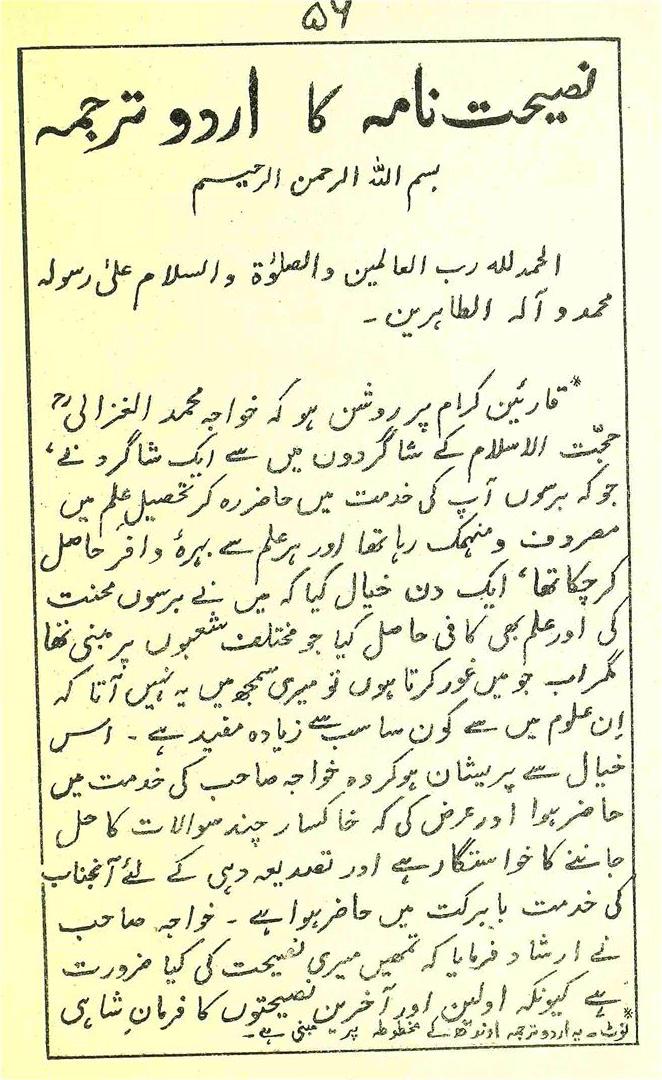 ۵۶
نصیحت نامہ کا اردو ترجمہ
بسم اللہ الرحمن الرحیم
الحمد للہ رب العالمین والصلوٰۃ والسلام علیٰ رسولہ
محمد و آلہ الطاہرین ۔
* قارئین کرام پر روشن ہو کہ خواجہ محمد الغزالیؒ
حجّت الاسلام کے شاگردوں میں سے ایک شاگرد نے،
جو کہ برسوں آپ کی خدمت میں حاضر رہ کر تحصیلِ علم میں
مصروف و منہمک رہا تھا اور ہر علم سے بہرۂ وافر حاصل
کر چکا تھا، ایک دن خیال کیا کہ میں نے برسوں محنت
کی اور علم بھی کافی حاصل کیا جو مختلف شعبوں پر مبنی تھا
مگر اب جو میں غور کرتا ہوں تو میری سمجھ میں یہ نہیں آتا کہ
اِن علوم میں سے کون سا سب سے زیادہ مفید ہے ۔ اس
خیال سے پریشان ہو کر وہ خواجہ صاحب کی خدمت میں
حاضر ہوا اور عرض کی کہ خاکسار چند سوالات کا حل
جاننے کا خواستگار ہے اور تصدیعہ دہی کے لئے آنجناب
کی خدمت بابرکت میں حاضر ہوا ہے ۔ خواجہ صاحب
نے ارشاد فرمایا کہ تمھیں میری نصیحت کی کیا ضرورت
ہے کیونکہ اولین اور آخرین نصیحتوں کا فرمانِ شاہی
* نوٹ ۔ یہ اردو ترجمہ کے مخطوطہ پر مبنی ہے ۔